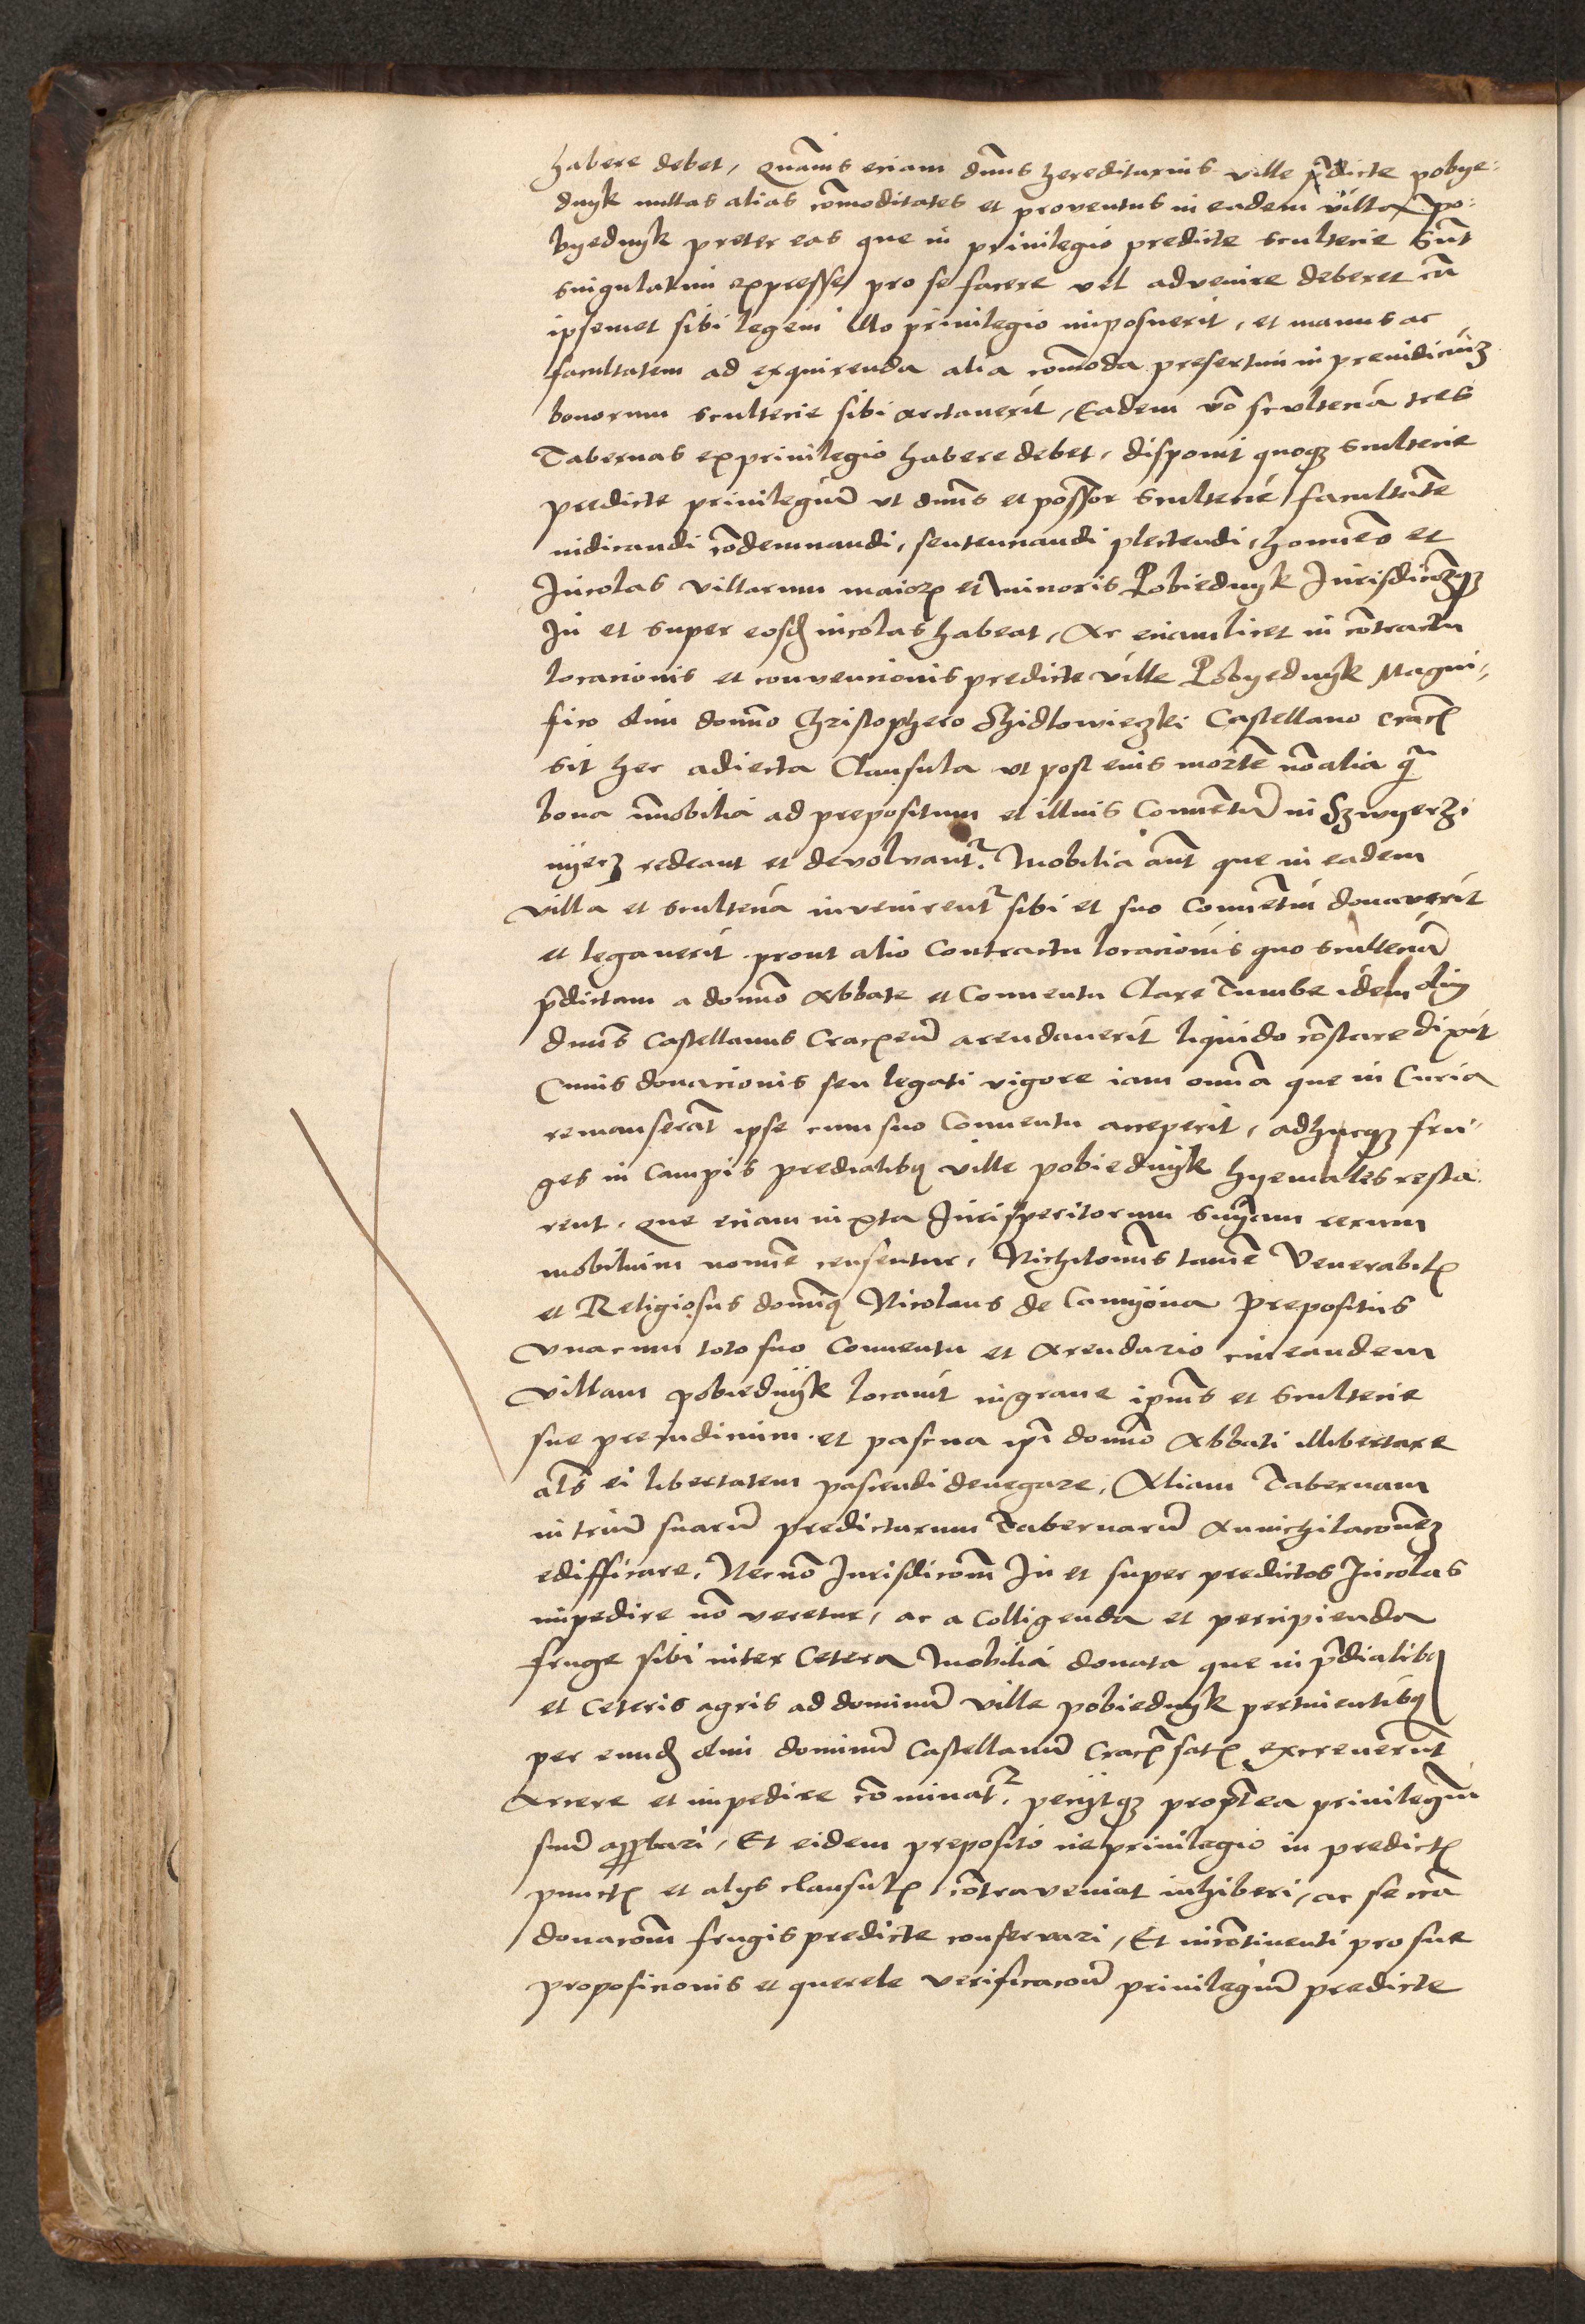 habere debet, Quãuis eciam dñus hereditarius ville p̃dicte pobye:
dnyk nullas alias cõmoditates et proventus in eadem villa Po:
byednyk preter eas que in privilegio predicte sculterie sunt
singulatim expresse pro se facere vel advenire deberet cũ
ipsemet sibi legem illo privilegio imposuerit, et manus ac
facultatem ad exquirenda alia cõmoda presertim in preiudiciũ
bonorum sculterie sibi arctaverit, Eadem võ scultecia tres
Tabernas ex privilegio habere debet, disponit quoqz sculterie
predicte privilegiũ ut dñus et possor sculterie facultatẽ
iudicandi cõdemnandi, sentenciandi plectendi, homines et
Incolas villarum maioris et minoris Pobiednyk Jurisdicõẽqz
In et super eosd incolas habeat, Ac eciam licet in cõtractu
locacionis et convencionis predicte ville Pobyednyk Magni,
fico olim domño Christophero Schidlowieczki Castellano Crac
sit hec adiecta Clausula ut post eius mortẽ nõ alia q̃
bona ĩmobilia ad prepositum et illius Conventũ in Szwyerzi
nyecz redeant et devolvant. Mobilia aũt que in eadem
villa et scultecia invenirent sibi et suo Conventui donaverit
et legaverit prout alio Contractu locacionis quo scultecia
p̃dictam a domño Abbate et Conventu Clare Tumbe idem olim
dñus Castellanus Crac eum arendaverit liquido cõstare dixit
Cuius donacionis seu legati vigore iam omnia que in Curia
remanserãt ipse cum suo Conventu acceperit, adhucqz fru
ges in Campis predialibus ville pobiednyk hyemales resta
rent, Que eciam iuxta Jurisperitorum sentenciam rerum
mobilium nomine censentur, Nichilomus tamẽ Venerabilis
et Religiosus dominus Nicolaus de Camyona Prepositus
vnacum toto suo Conventu et Arendario cui eandem
villam pobiednyk locavit in grave ipius et sculterie
sue preiudicium et pascua ipi domño Abbati illibertare
als ei libertatem pascendi denegare, Aliam Tabernam
in triũ suarũ predictarum Tabernarũ Annichilacionez
edifficare, Necnõ Jurisdicõm In et super predictos Incolas
impedire nõ veretur, ac a Colligenda et percipienda
fruge sibi inter Cetera Mobilia donata que in p̃dialibus
et Ceteris agris ad dominũ ville pobiednyk pertinentibus
per eund olim dominũ Castellanũ Crac satis excreverunt
Arcere et impedire cõminat. petijtqz propterea privilegiũ
suũ approbari, Et eidem preposito ne privilegio in predictis
punctis et alijs clausulis cõtraveniat inhiberi, ac se circa
donacõm frugis predicte conservari, Et incõtinenti pro sue
proposicionis et querele verificacõe privilegiũ predicte